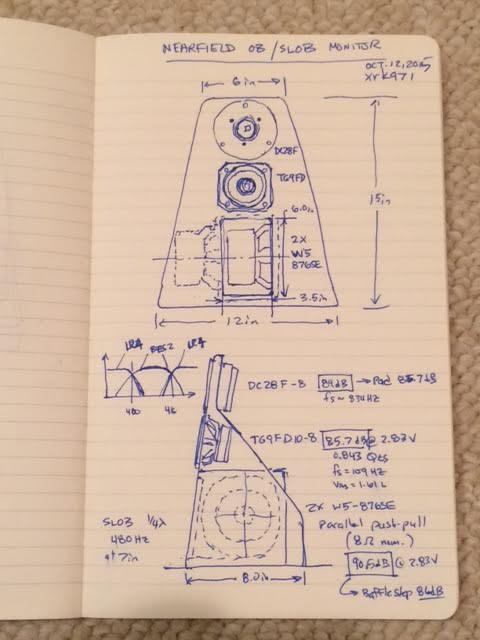 NEARFIELD OB/SLOB MONITOR
OCT. 12, 2015
XRK971
6in
DC28F
TG9FD
15in
6.0in
2X
W5
876SE
3.5in
12in
LR4 BES2 LR4
480 4K
DC28F-8 89dB → Pad 85.7dB
fs ~ 874 HZ
TG9FD10-8 85.7dB @ 2.83V
0.843 Qts
fs = 109 HZ
Vas = 1.61 L
2X W5-876SE
Parallel push-pull
(8Ω nom.)
90.5dB @ 2.83V
Baffle step 86dB
SLOB 1/4λ
480HZ
at 7in
8.0in